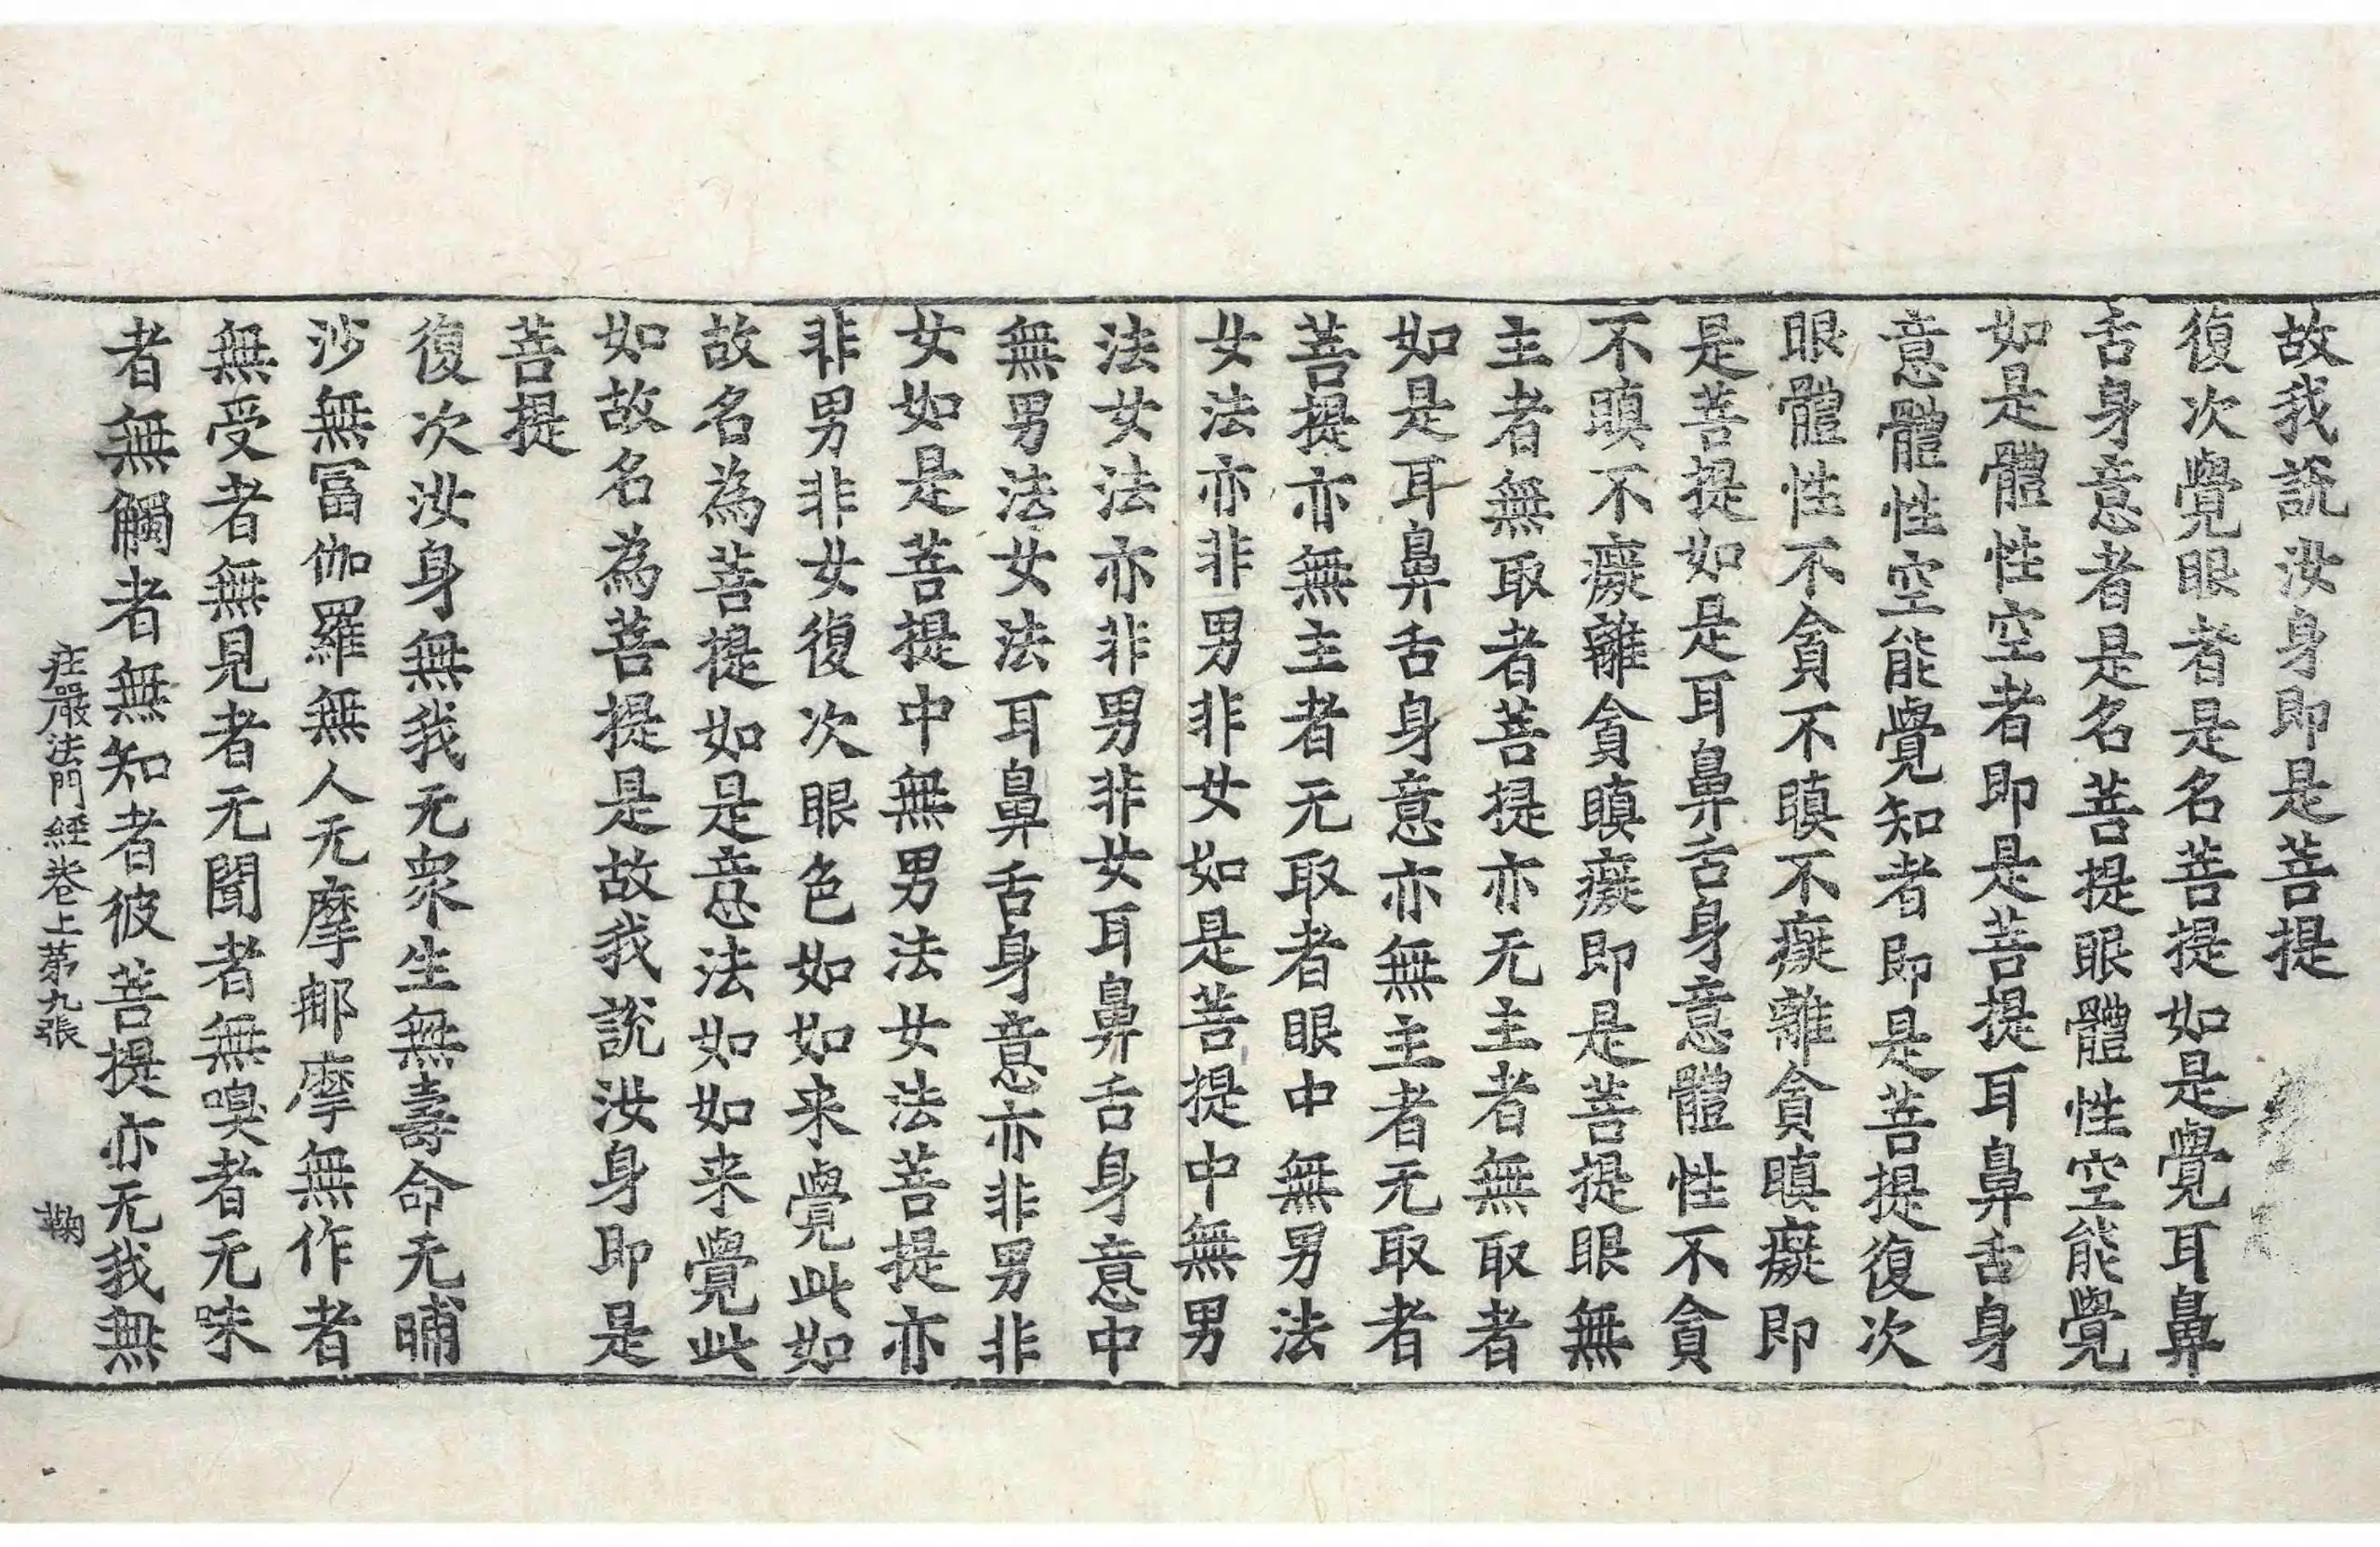 故我說汝身即是菩提
復次覺眼者是名菩提如是覺耳鼻
舌身意者是名菩提眼體性空能覺
如是體性空者即是菩提耳鼻舌身
意體性空能覺知者即是菩提復次
眼體性不貪不瞋不癡離貪瞋癡即
是菩提如是耳鼻舌身意體性不貪
不瞋不癡離貪瞋癡即是菩提眼無
主者無取者菩提亦无主者無取者
如是耳鼻舌身意亦無主者无取者
菩提亦無主者无取者眼中無男法
女法亦非男非女如是菩提中無男
法女法亦非男非女耳鼻舌身意中
無男法女法耳鼻舌身意亦非男非
女如是菩提中無男法女法菩提亦
非男非女復次眼色如如来覺此如
故名為菩提如是意法如如来覺此
如故名為菩提是故我說汝身即是
菩提
復次汝身無我无衆生無壽命无晡
沙無冨伽羅無人无摩那摩無作者
無受者無見者无聞者無嗅者无味
者無觸者無知者彼菩提亦无我無
庄嚴法門經卷上第九張 鞠